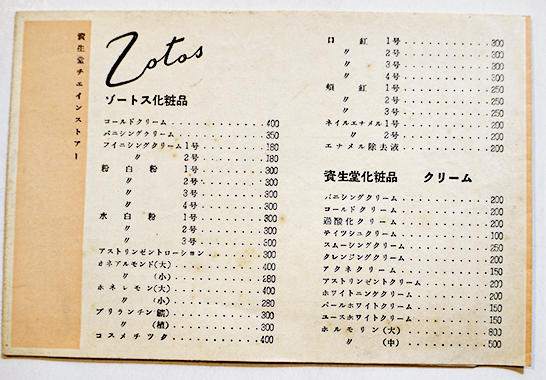 資生堂チエインストアー
Zotos
ゾートス化粧品
コールドクリーム 400
バニシングクリーム 350
フイニシングクリーム1号 180
〃 2号 180
粉白粉 1号 300
〃 2号 300
〃 3号 300
水白粉 1号 300
〃 2号 300
〃 3号 300
アストリンゼントローション 300
オネアルモンド(大) 400
〃 (小) 280
ホネレモン(大) 400
〃 (小) 280
ブリランチン 300
〃 (植) 300
コスメチツク 400
口紅 1号 300
〃 2号 300
〃 3号 300
〃 4号 300
頬紅 1号 250
〃 2号 250
〃 3号 250
ネイルエナメル1号 200
〃 2号 200
エナメル除去液 200
資生堂化粧品 クリーム
バニシングクリーム 200
コールドクリーム 200
過酸化クリーム 200
テイツシュクリーム 100
スムーシングクリーム 250
クレンジングクリーム 200
アクネクリーム 150
アストリンゼントクリーム 200
ホワイトニングクリーム 200
パールホワイトクリーム 150
ユースホワイトクリーム 150
ホルモリン(大) 800
〃 (中) 500